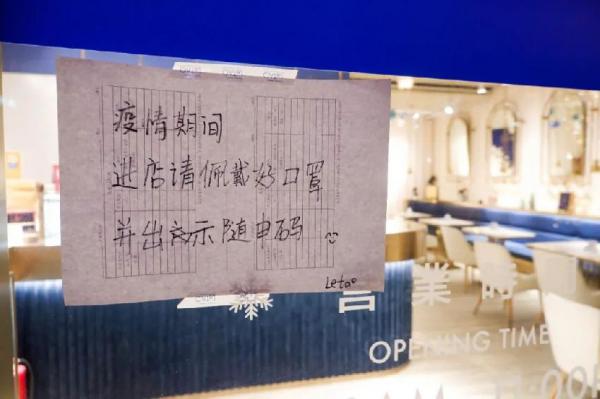 疫情期间
进店请佩戴好口罩
并出示随申码
Letao
業時
OPENING TIME